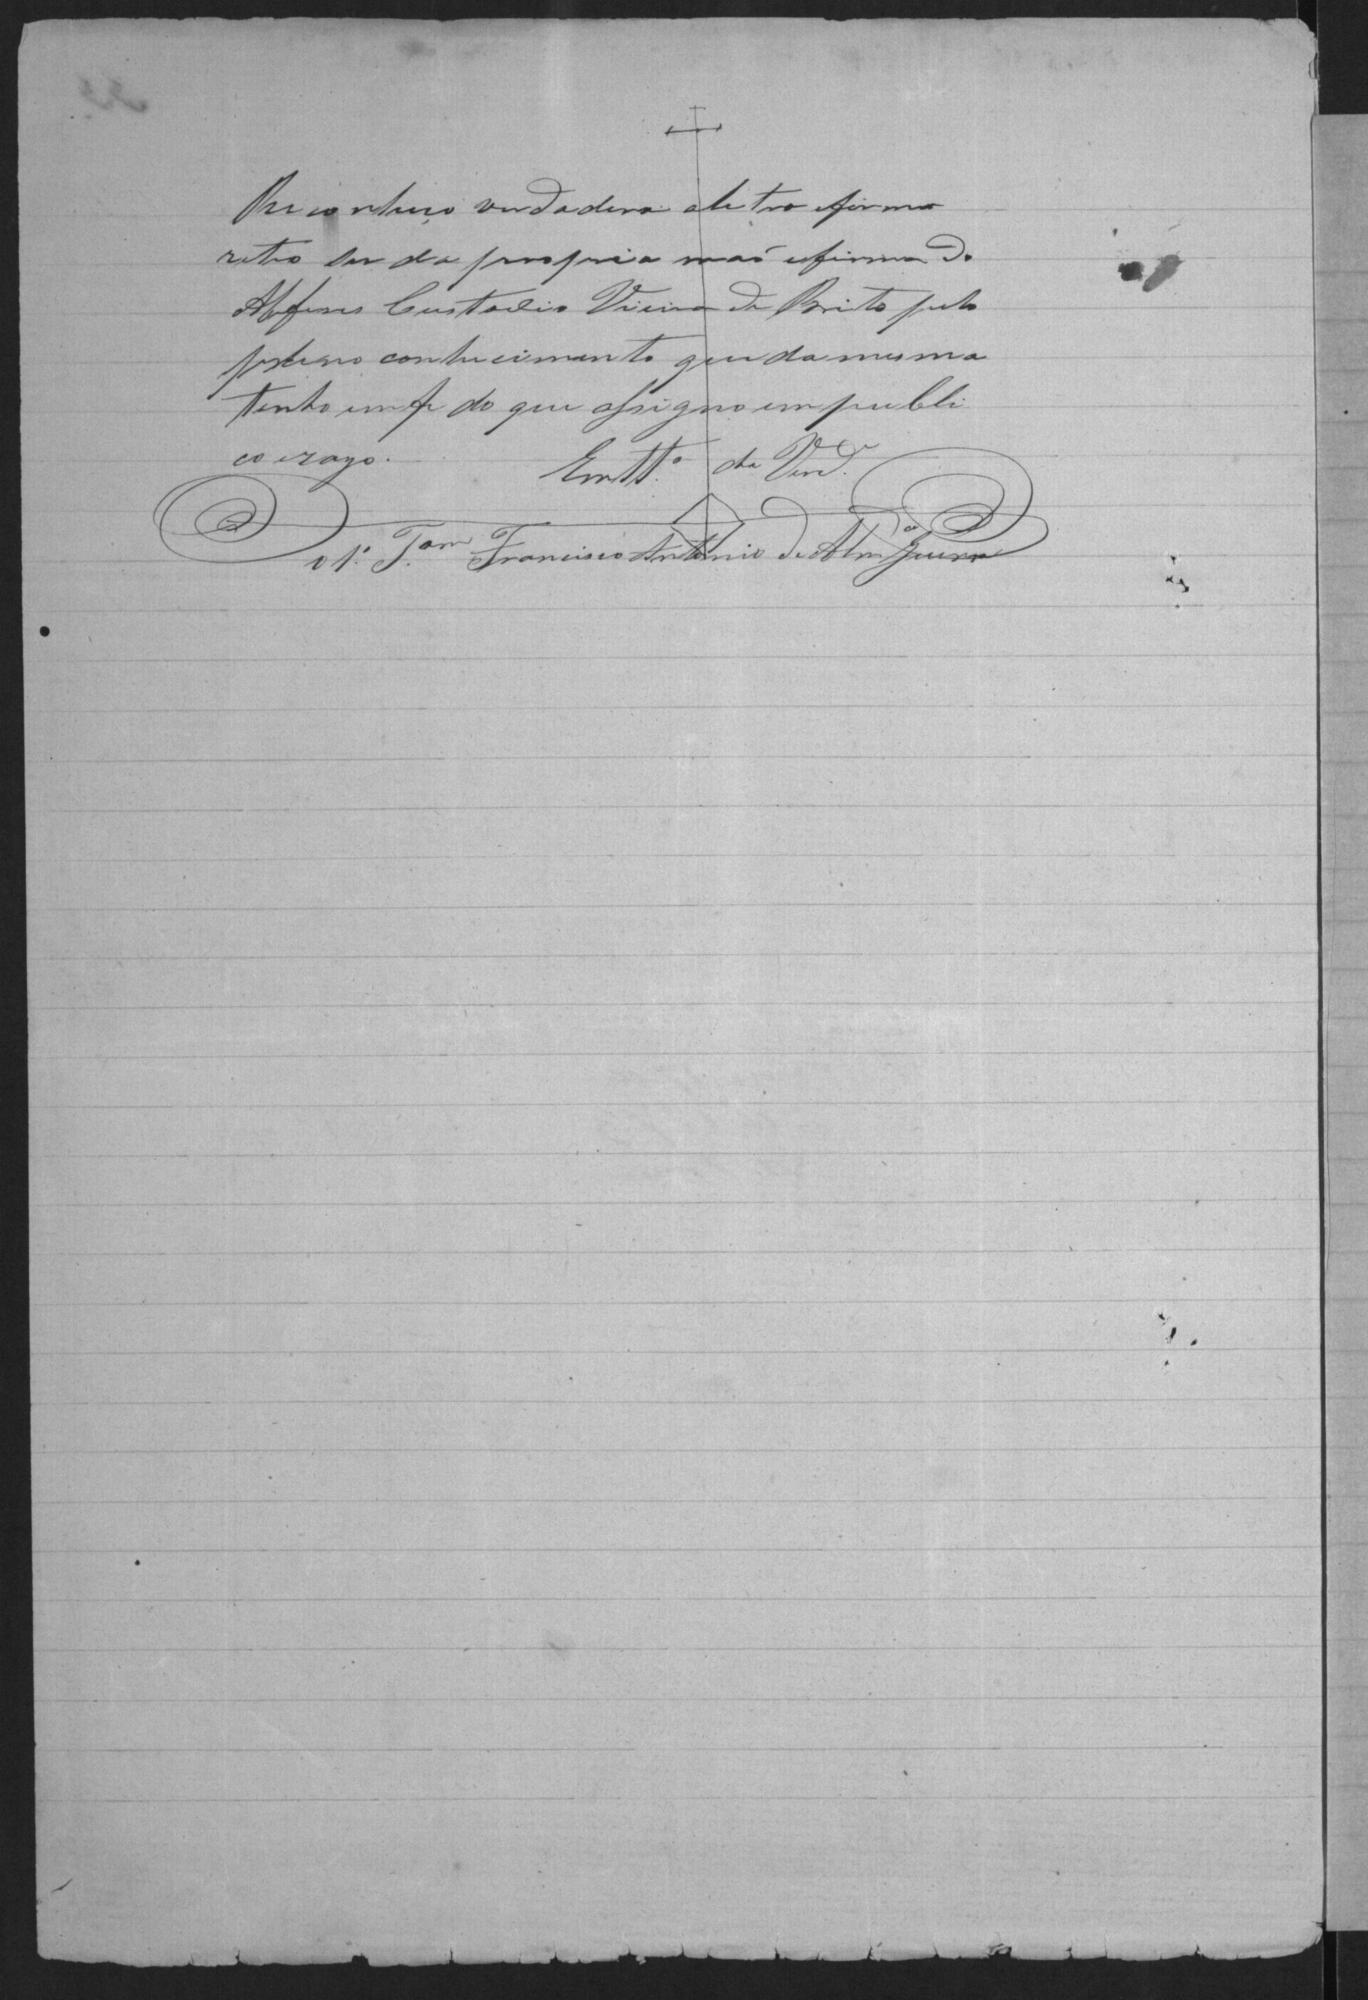 Reconheço verdadeira aletra efirma
retro ser da propria maõ efirma do
Alferes Custodio Vieira de Brito pelo
pleno conhecimento que da mesma
tenho em fe do que assigno em publi
co erazo.
Em tt.º da Verd.e
o 1.º T.am Francisco Antonio de Almd.ª